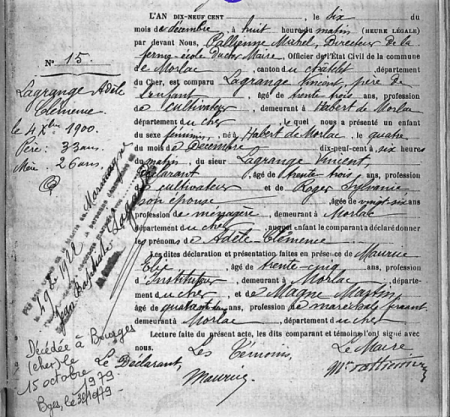 L'AN DIX-NEUF CENT, le dix
du mois de décembre, à huit heures du matin (HEURE LÉGALE)
par devant Nous, Michel, Directeur de la
Maire, Officier de l'État Civil de la commune
de Morlac, canton de Chatelet, département
du Cher, est comparu Lagrange Vincent, père de
l'enfant, âgé de trente trois ans, profession
de cultivateur, demeurant à de Morlac
département du cher, lequel nous a présenté un enfant
du sexe féminin, né à de Morlac, le quatre
du mois de Décembre dix-neuf-cent, à six heures
du matin, du sieur Lagrange Vincent,
déclarant, âgé de trente trois ans, profession
de cultivateur et de Roger Sylvanie
son épouse, âgée de vingt-six ans
profession de ménagère, demeurant à Morlac
département du cher, auquel enfant le comparant a déclaré donner
les prénoms de Adèle Clémence
Les dites déclaration et présentation faites en présence de Maurice
, âgé de trente-cinq ans, profession
d'Instituteur, demeurant à Morlac, département
du cher et de Magne Martin,
âgé de ans, profession de maréchal ferrant
demeurant à Morlac, département du cher.
Lecture faite du présent acte, les dits comparant et témoins l'ont signé avec
nous.
Le Déclarant, Les Témoins, Le Maire
Maurice
N° 15.
Lagrange Adèle
Clémence
le 4 Xbre 1900.
Père : 33 ans
Mère : 26 ans
Mariage
1922
Jean Baptiste
Décédée à Bourges
(cher) le
15 octobre
1979
Bges, le